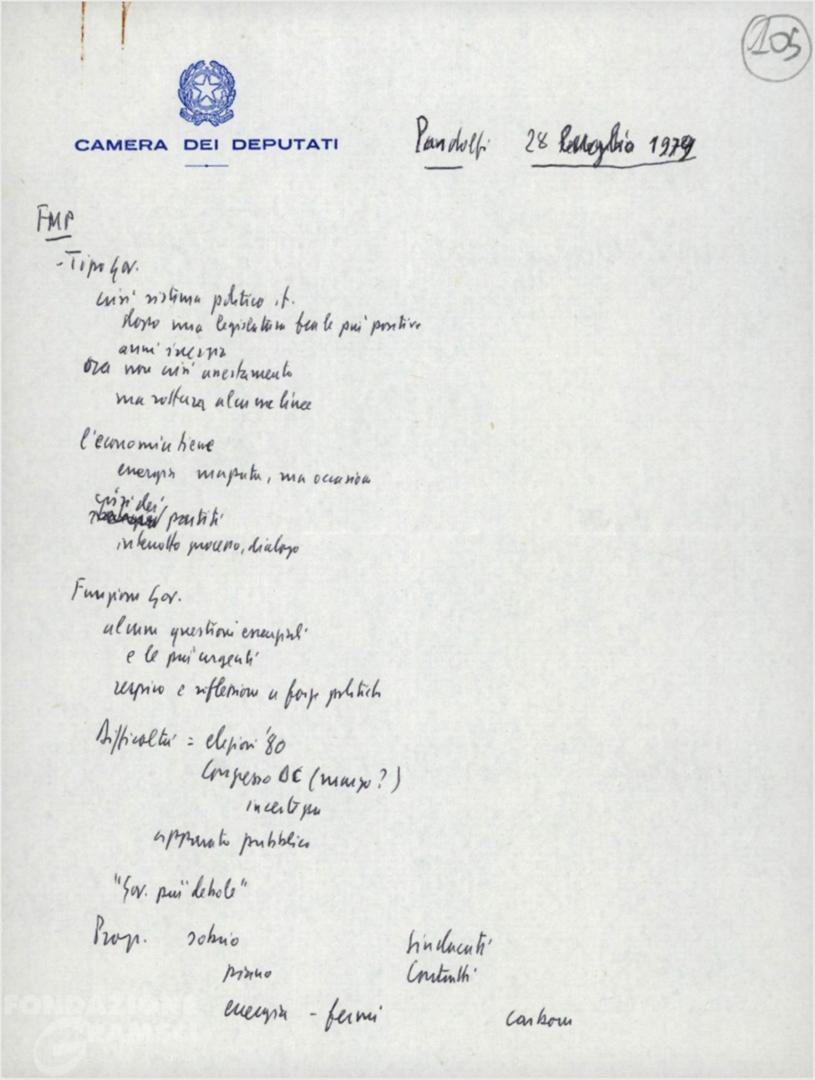 105
CAMERA DEI DEPUTATI
Pandolfi 28 Luglio 1979
FMP
- Tipo Gov.
crisi sistema politico it.
dopo una legislatura fra le più positive
anni inerzia
Ora non crisi arrestamento
ma rottura alcune linee
l'economia tiene
energia minaccia, ma occasione
crisi dei partiti
interrotto processo, dialogo
Funzione Gov.
alcune questioni essenziali
e le più urgenti
respiro e riflessione a forze politiche
Difficoltà = elezioni '80
Congresso DC (marzo?)
incertezza
apparato pubblico
"Gov. più debole"
Progr. sobrio Sindacati
piano Contratti
energia - fermi carbone
FONDAZIONE
GRAMSCI